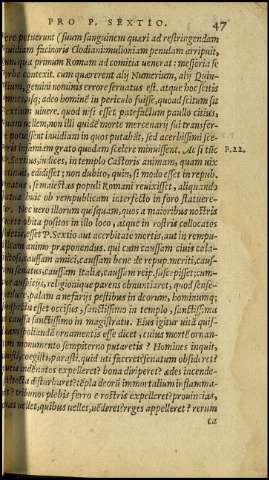 PRO P. SEXTIO. 47
ere potuerunt (suum sanguinem quæri ad restringendam
inuidiam facinoris Clodiani: mulioniam penulam arripuit,
qua primum Romam ad comitia uenerat: messoria se
orbe contexit. cum quærerent alij Numerium, alij Quin-
tium, gemini nominis errore seruatus est. atque hoc scitis
omnes, usq; adeo hominē in periculo fuisse, quoad scitum sit
Sextium uiuere. quod ni esset patefactum paullo citius,
non illi quidē morte mercenarij sui transfer-
potuissent inuidiam in quos putabāt, sed acerbissimi sce-
ris infamiam grato quodam scelere minuissent. Ac si tūc
P. 22.
Sextius, iudices, in templo Castoris animam, quam uix
edidisset; non dubito, quin, si modo esset in repub.
senatus, si maiestas populi Romani reuixisset, aliquando
huic ob rempublicam interfecto in foro statuere-
Nec uero illorum quisquam, quos a maioribus nostris
obita positos in illo loco, atque in rostris collocatos
esset P. Sextio aut acerbitate mortis, aut in rempu-
animo præponendus. qui cum caussam ciuis cala-
caussam amici, caussam bene de repup. meriti, caus-
senatus, caussam Italiæ, caussam reip. suscepisset; cum-
auspicijs, religionique parens obnuntiaret, quod sense-
palam a nefarijs pestibus in deorum, hominumq;
esset occisus, sanctissimo in templo, sanctissima
sanctissimo in magistratu. Eius igitur uitā quis-
spoliandā ornamentis esse dicet, cuius mortē ornan-
monumento sempiterno putaretis? Homines inquit,
coegisti, parasti. quid uti faceret? senatum obsideret?
indēnatos expelleret? bona diriperet? ædes incende-
tecta disturbaret? tēpla deorū immortalium inflamma-
tribunos plebis ferro e rostris expelleret? prouincias,
uellet, quibus uellet, uēderet? reges appelleret? rerum
ca